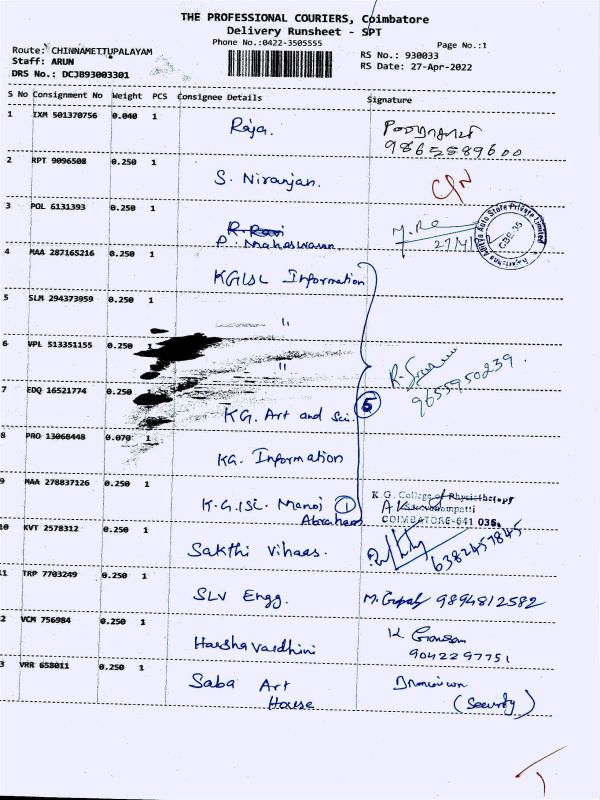 THE PROFESSIONAL COURIERS, Coimbatore
Delivery Runsheet - SPT
Phone No.:0422-3505555
Page No.:1
Route: CHINNAMETTUPALAYAM
Staff: ARUN
DRS No.: DCJB93003301
RS No.: 930033
RS Date: 27-Apr-2022
S No Consignment No Weight PCS Consignee Details Signature
1 IXM 501370756 0.040 1 Raja.
9865589600
2 RPT 9096508 0.250 1 S. Niranjan.
3 POL 6131393 0.250 1 R. Ravi
P. Mahaswaran
Auto State Private Limited
CBE-35
4 MAA 287165216 0.250 1 KGISL Information
5 SLM 294373959 0.250 1 "
6 VPL 513351155 0.250 1 "
9655950239.
7 EDQ 16521774 0.250 KG. Art and Sci. 5
8 PRO 13068448 0.070 1 KG. Information
9 MAA 278837126 0.250 1 K.G.ISL. Manoj 1
Abraham
K.G. College of Physiotherapy
COIMBATORE-641 035.
10 KVT 2578312 0.250 1 Sakthi Vihaas. 6382457845
11 TRP 7703249 0.250 1 SLV Engg. M. Gopal 9894812582
2 VCM 756984 0.250 1 Harsha Vardhini
9042297751
3 VRR 658011 0.250 1 Saba Art
House
(Security)